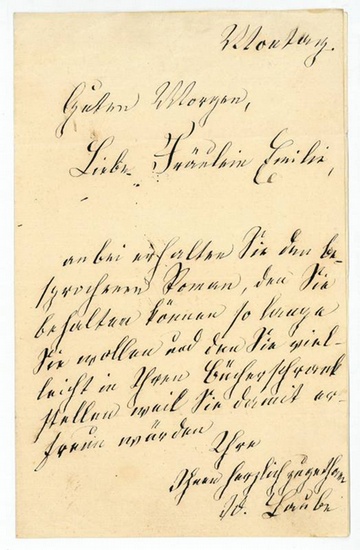 Montag.
Guten Morgen,
Liebe Fräulein Emilie,
anbei erhalten Sie den be-
sprochenen Roman, den Sie
behalten können so lange
Sie wollen und den Sie viel-
leicht in Ihren Bücherschrank
stellen weil Sie damit er-
freun würden
Ihre
Ihnen herzlich zugethane
Laube